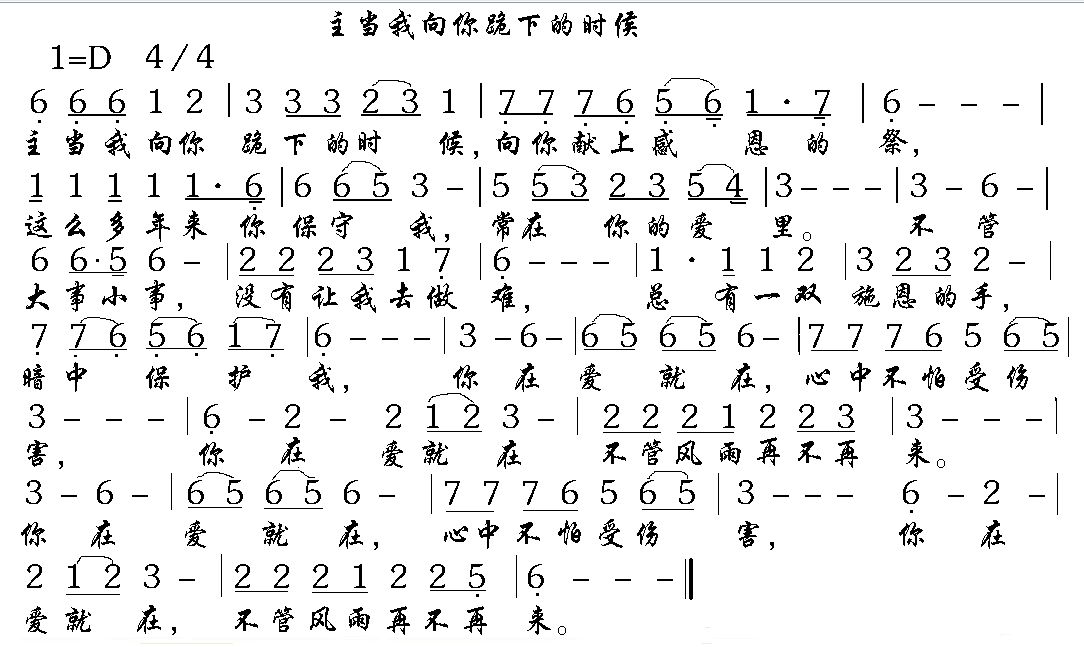 主当我向你跪下的时侯
1=D 4/4
6 6 6 1 2 | 3 3 3 2 3 1 | 7 7 7 6 5 6 1 · 7 | 6 - - - |
主当我向你 跪下的时 候,向你献上感 恩的 祭,
1 1 1 1 1 · 6 | 6 6 5 3 - | 5 5 3 2 3 5 4 | 3 - - - | 3 - 6 - |
这么多年来 你保守 我, 常在 你的爱 里。 不 管
6 6 · 5 6 - | 2 2 2 3 1 7 | 6 - - - | 1 · 1 1 2 | 3 2 3 2 - |
大事小事, 没有让我去做 难, 总 有一双 施恩的手,
7 7 6 5 6 1 7 | 6 - - - | 3 - 6 - | 6 5 6 5 6 - | 7 7 7 6 5 6 5 |
暗中 保 护 我, 你 在 爱 就 在, 心中不怕受伤
3 - - - | 6 - 2 - 2 1 2 3 - | 2 2 2 1 2 2 3 | 3 - - - |
害, 你 在 爱就 在 不管风雨再不再 来。
3 - 6 - | 6 5 6 5 6 - | 7 7 7 6 5 6 5 | 3 - - - 6 - 2 - |
你 在 爱 就 在, 心中不怕受伤 害, 你 在
2 1 2 3 - | 2 2 2 1 2 2 5 | 6 - - - ||
爱就 在, 不管风雨再不再 来。